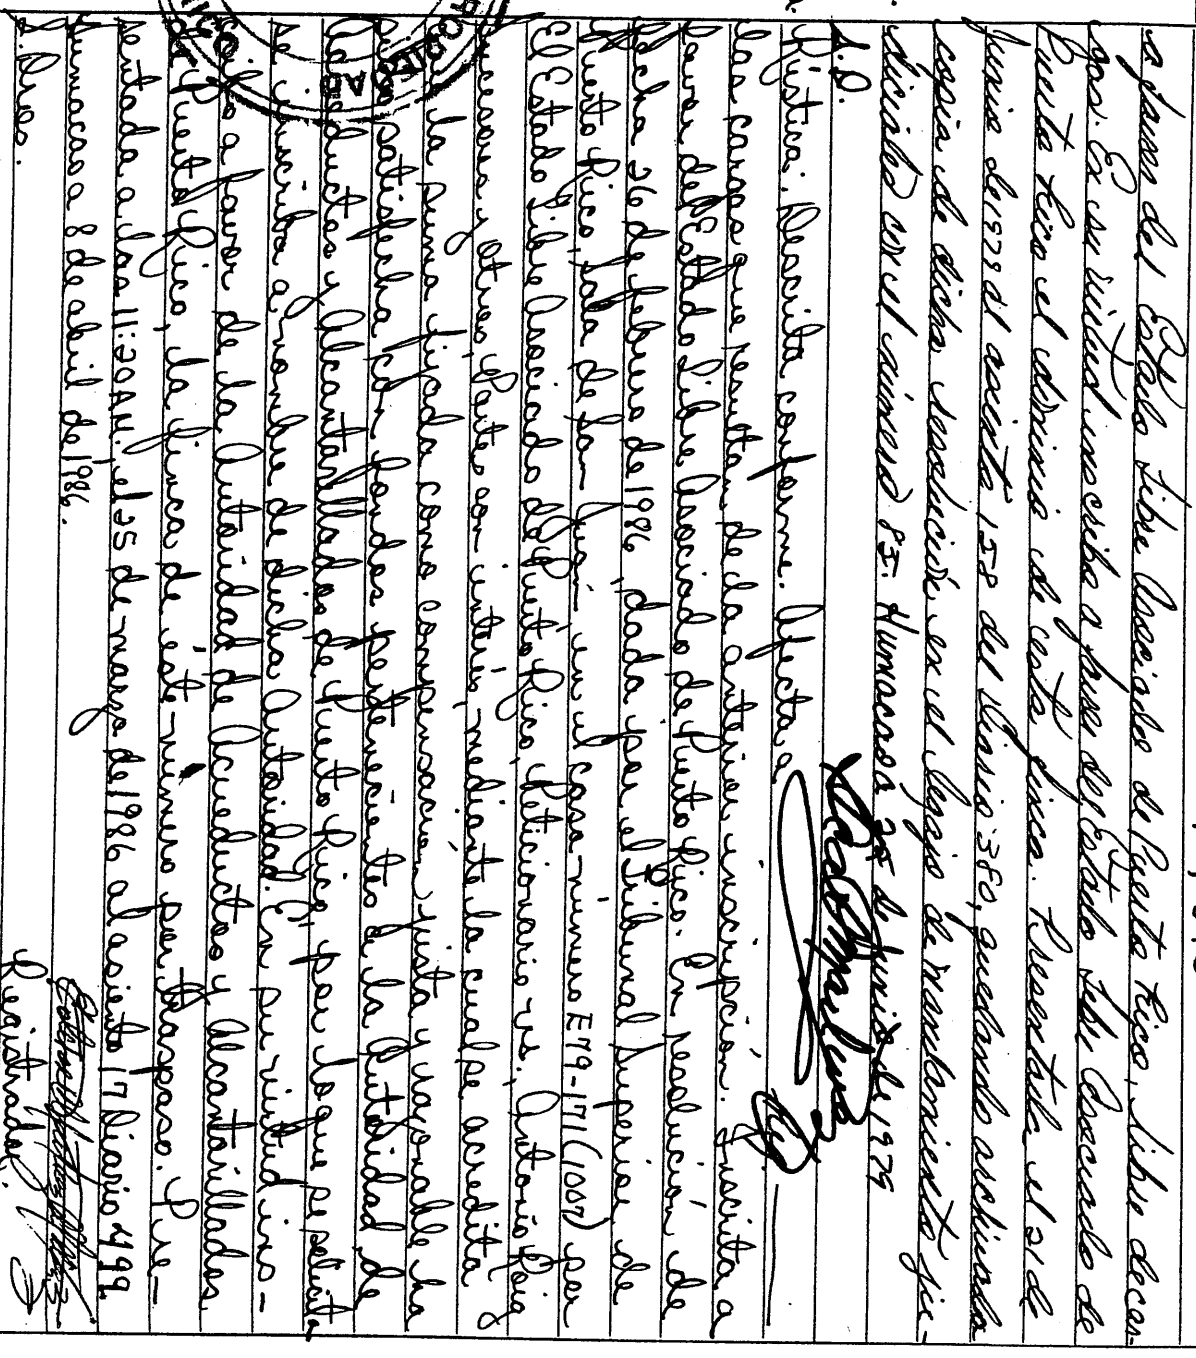 a favor del Estado Libre Asociado de Puerto Rico, libre de car-
gas. En su virtud inscribo a favor del Estado Libre Asociado de
Puerto Rico el dominio de esta finca. Presentada el 21 de
junio de 1979 al asiento 158 del Diario 380, quedando archivada
copia de dicha resolución en el legajo de mandamientos ju-
diciales con el número 85. Humacao a 25 de junio de 1979
S.D.
Rústica: Descrita conforme. Afecta a
las cargas que resultan de la anterior inscripción. Inscrita a
favor del Estado Libre Asociado de Puerto Rico. En resolución de
fecha 26 de febrero de 1986, dada por el Tribunal Superior de
Puerto Rico, Sala de San Juan en el caso número E79-171 (1007) por
El Estado Libre Asociado de Puerto Rico, Peticionario vs. Antonio Roig
Sucesores y otros, Partes con interés, mediante la cual se acredita
que la suma fijada como compensación justa y razonable ha
sido satisfecha con fondos pertenecientes a la Autoridad de
Acueductos y Alcantarillados de Puerto Rico, por lo que se solicita
se inscriba a nombre de dicha Autoridad. En su virtud ins-
cribo a favor de la Autoridad de Acueductos y Alcantarillados
de Puerto Rico, la finca de este número por traspaso. Pre-
sentada a las 11:20 AM. el 25 de marzo de 1986 al asiento 17 Diario 499
Humacao a 8 de abril de 1986.
S. Dros.
Registrador.